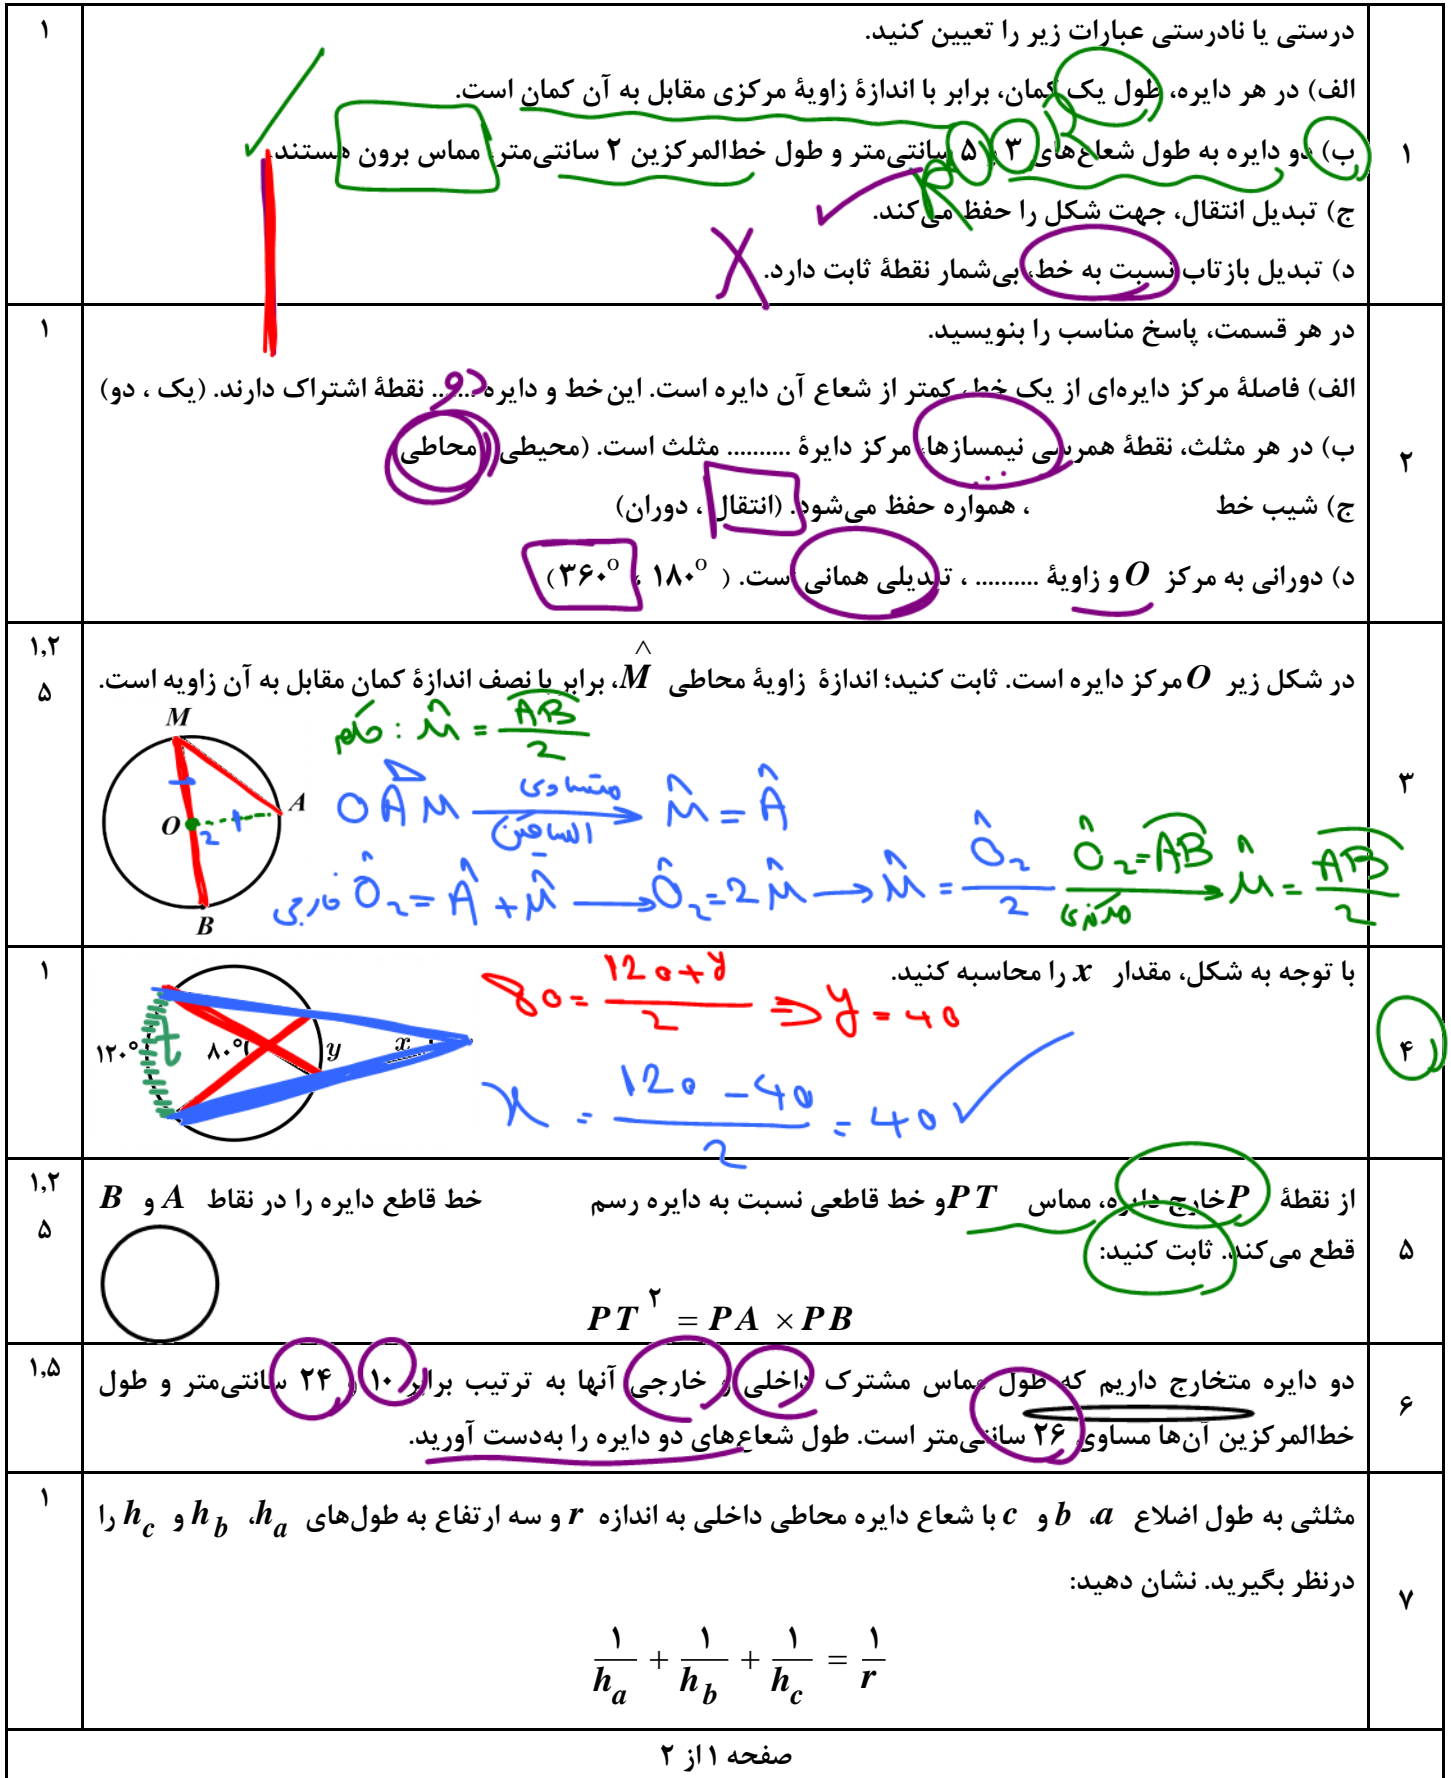 ۱
درستی یا نادرستی عبارات زیر را تعیین کنید.
الف) در هر دایره، طول یک کمان، برابر با اندازهٔ زاویهٔ مرکزی مقابل به آن کمان است.
ب) دو دایره به طول شعاع‌های ۳ و ۵ سانتی‌متر و طول خط‌المرکزین ۲ سانتی‌متر، مماس برون هستند.
R
R
ج) تبدیل انتقال، جهت شکل را حفظ می‌کند.
د) تبدیل بازتاب نسبت به خط، بی‌شمار نقطهٔ ثابت دارد.
۱
۲
در هر قسمت، پاسخ مناسب را بنویسید.
الف) فاصلهٔ مرکز دایره‌ای از یک خط، کمتر از شعاع آن دایره است. این خط و دایره ....... نقطهٔ اشتراک دارند. (یک ، دو)
دو
ب) در هر مثلث، نقطهٔ همرسی نیمسازها، مرکز دایرهٔ .......... مثلث است. (محیطی ، محاطی)
ج) شیب خط ، همواره حفظ می‌شود. (انتقال ، دوران)
د) دورانی به مرکز O و زاویهٔ .......... ، تبدیلی همانی است. ( ۱۸۰° ، ۳۶۰°)
۱
۳
در شکل زیر O مرکز دایره است. ثابت کنید؛ اندازهٔ زاویهٔ محاطی M̂، برابر با نصف اندازهٔ کمان مقابل به آن زاویه است.
۱,۲۵
M
A
O
2
B
حکم : M̂ = AB/2
OAM متساوی الساقین → M̂ = Â
خارجی Ô2 = Â + M̂ → Ô2 = 2M̂ → M̂ = Ô2/2 Ô2 = AB مرکزی → M̂ = AB/2
۴
با توجه به شکل، مقدار x را محاسبه کنید.
۱
۱۲۰° ۸۰° y x
80 = 120+y/2 ⇒ y = 40
x = 120 - 40/2 = 40
۵
از نقطهٔ P خارج دایره، مماس PT و خط قاطعی نسبت به دایره رسم خط قاطع دایره را در نقاط A و B
قطع می‌کند. ثابت کنید:
PT ۲ = PA × PB
۱,۲۵
۶
دو دایره متخارج داریم که طول مماس مشترک داخلی و خارجی آنها به ترتیب برابر ۱۰ و ۲۴ سانتی‌متر و طول
خط‌المرکزین آن‌ها مساوی ۲۶ سانتی‌متر است. طول شعاع‌های دو دایره را به‌دست آورید.
۱,۵
۷
مثلثی به طول اضلاع a، b و c با شعاع دایره محاطی داخلی به اندازه r و سه ارتفاع به طول‌های h_a، h_b و h_c را
درنظر بگیرید. نشان دهید:
۱/h_a + ۱/h_b + ۱/h_c = ۱/r
۱
صفحه ۱ از ۲